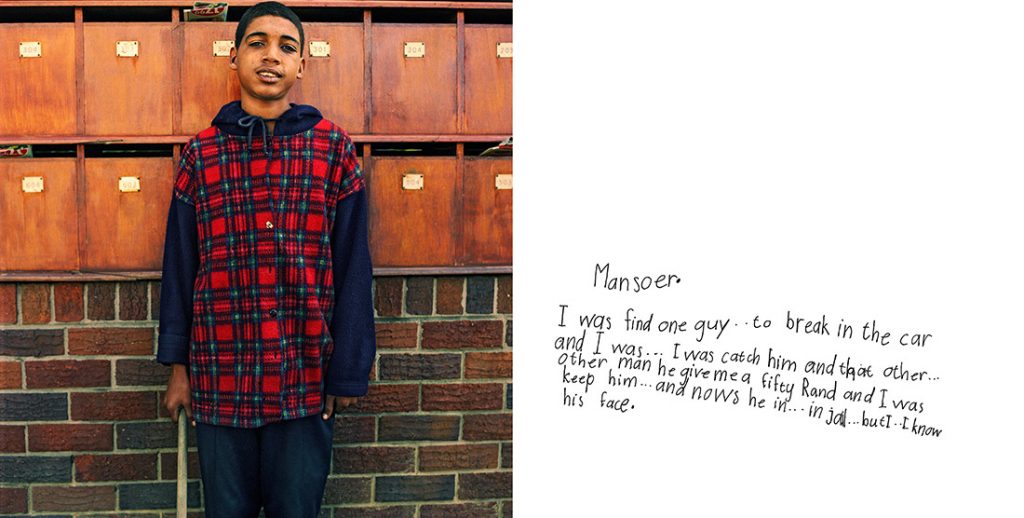 304
703
604
603
604
Mansoer.
I was find one guy.. to break in the car
and I was... I was catch him and that other...
other man he give me a fifty Rand and I was
keep him... and nows he in... in jail... but I.. I know
his face.